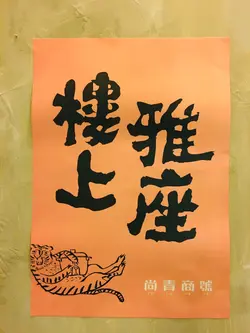 樓上
雅座
尚青商號